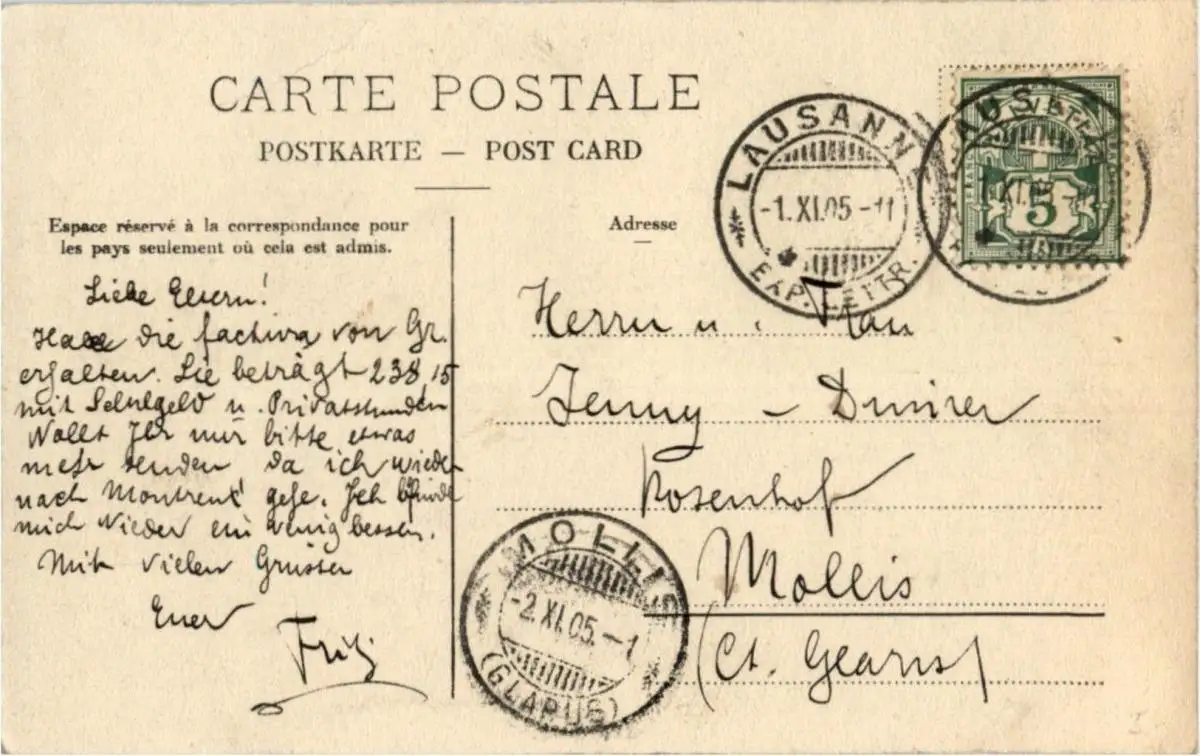 CARTE POSTALE
POSTKARTE — POST CARD
Espace réservé à la correspondance pour
les pays seulement où cela est admis.
Adresse
LAUSANNE
-1.XI.05-11
EXP. LETTR.
LAUS
1.XI.05
5
Liebe Eltern!
Habe die factura von Gr.
erhalten. Sie beträgt 238 15
mit Schulgeld u. Privatstunden
Wollt Ihr mir bitte etwas
mehr senden da ich wieder
nach Montreux gehe. Ich befinde
mich wieder ein wenig besser.
Mit vielen Grüssen
Euer
Fritz
Herrn u. Frau
Jenny -
Rosenhof
Mollis
(Ct. Glarus)
MOLLIS
-2.XI.05.-1
(GLARUS)